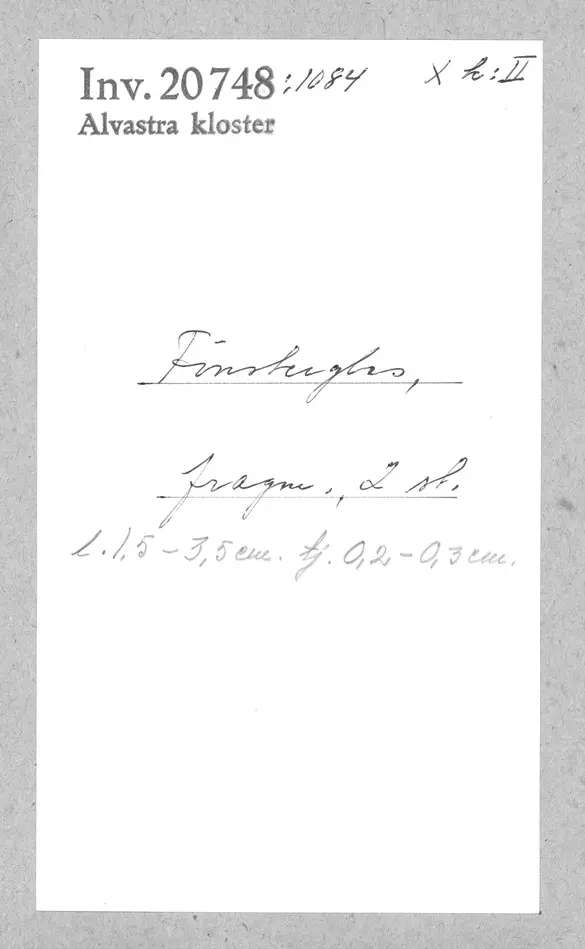 Inv. 20748:1084 X k:II
Alvastra kloster
Fönsterglas,
fragm., 2 st.
l. 1,5 – 3,5 cm. tj. 0,2 – 0,3 cm.